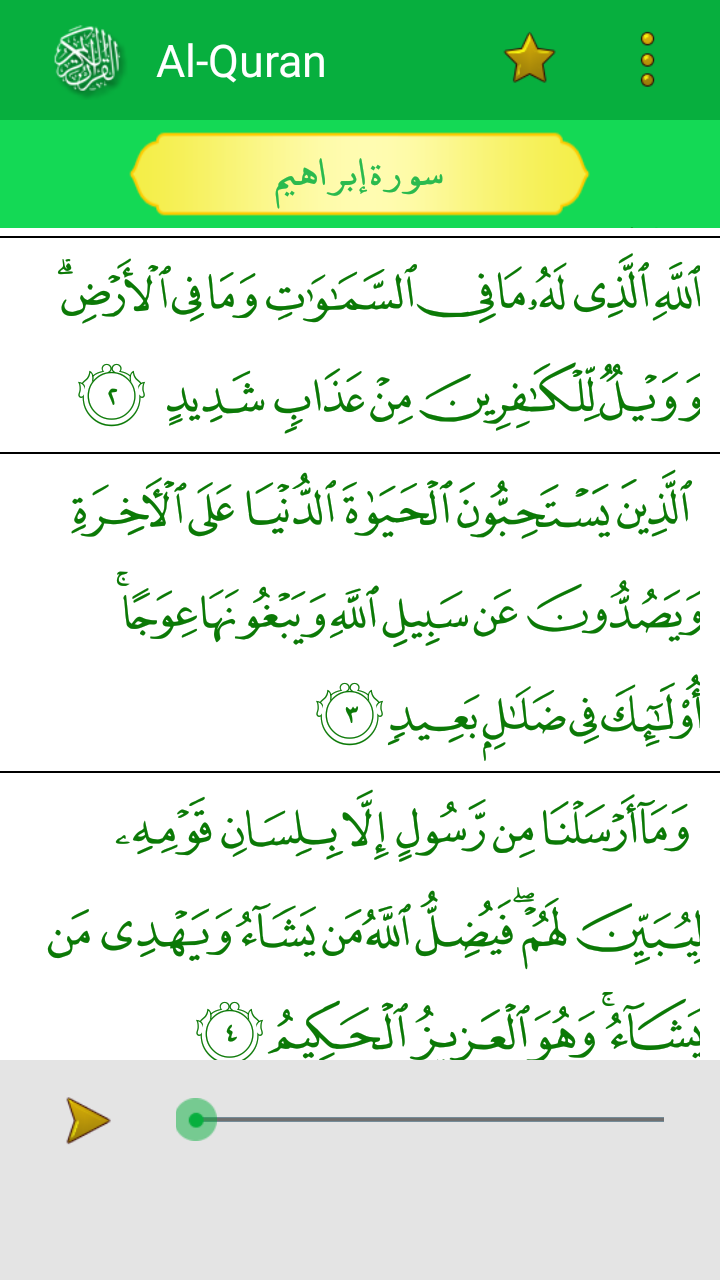 Al-Quran
سورة إبراهيم
ٱللَّهِ ٱلَّذِى لَهُۥ مَا فِى ٱلسَّمَـٰوَٰتِ وَمَا فِى ٱلْأَرْضِ ۗ
وَوَيْلٌ لِّلْكَـٰفِرِينَ مِنْ عَذَابٍ شَدِيدٍ ٢
ٱلَّذِينَ يَسْتَحِبُّونَ ٱلْحَيَوٰةَ ٱلدُّنْيَا عَلَى ٱلْـَٔاخِرَةِ
وَيَصُدُّونَ عَن سَبِيلِ ٱللَّهِ وَيَبْغُونَهَا عِوَجًا ۚ
أُو۟لَـٰٓئِكَ فِى ضَلَـٰلٍۭ بَعِيدٍ ٣
وَمَآ أَرْسَلْنَا مِن رَّسُولٍ إِلَّا بِلِسَانِ قَوْمِهِۦ
لِيُبَيِّنَ لَهُمْ ۖ فَيُضِلُّ ٱللَّهُ مَن يَشَآءُ وَيَهْدِى مَن
يَشَآءُ ۚ وَهُوَ ٱلْعَزِيزُ ٱلْحَكِيمُ ٤